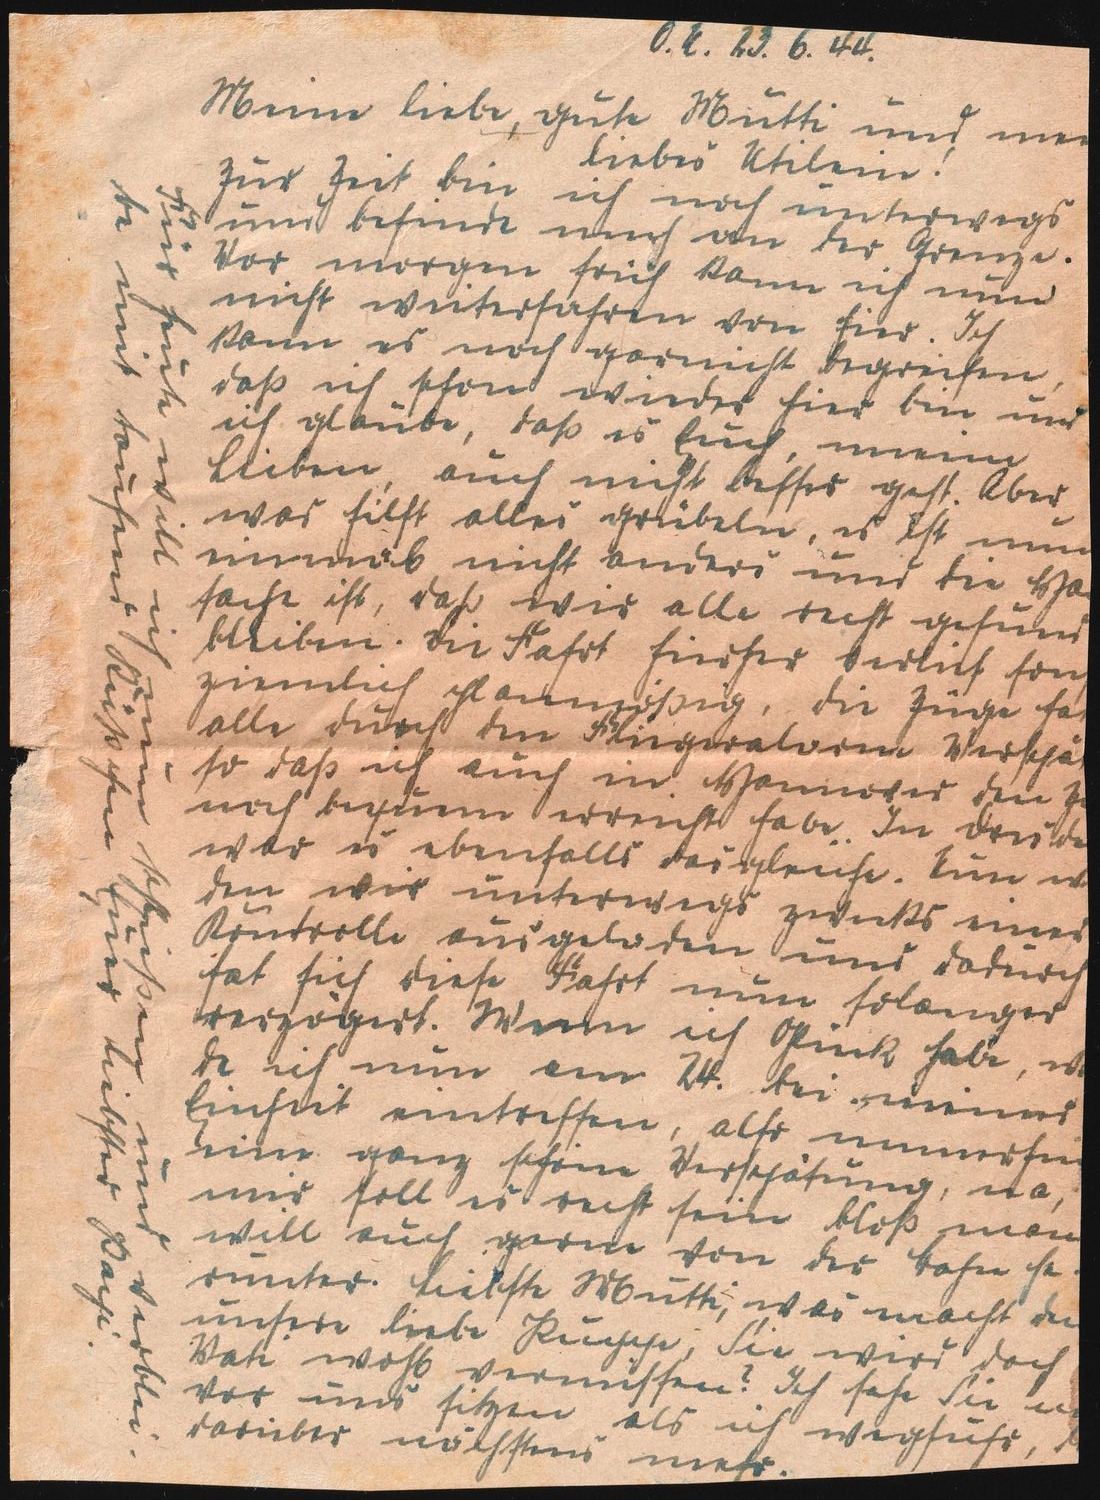 O.U. 23.6.44.
Meine liebe, gute Mutti und mein
liebes Utilein!
Zur Zeit bin ich noch unterwegs
und befinde mich an der Grenze.
Vor morgen früh kann ich nun
nicht weiterfahren von hier. Ich
kann es noch garnicht begreifen,
daß ich schon wieder hier bin und
ich glaube, daß es Euch, meine
Lieben, auch nicht besser geht. Aber
was hilft alles grübeln, es ist nun
einmal nicht anders und die Ha
sache ist, daß wir alle recht gesund
bleiben. Die Fahrt hierher verlief son
ziemlich planmäßig, die Züge hat
alle durch den Fliegeralarm Verspä
so daß ich auch in Hannover den Z
noch bequem erreicht habe. In Dresde
war es ebenfalls dasgleiche. Nun w
den wir unterwegs zwecks einer
Kontrolle ausgeladen und dadurch
hat sich diese Fahrt nun solanger
verzögert. Wenn ich Glück habe, we
de ich nun am 24. bei meiner
Einheit eintreffen, also immerhin
eine ganz schöne Verspätung, na,
mir soll es recht sein bloß man
will auch gerne von der Bahn he-
runter. Liebste Mutti, was macht den
unsere liebe Puppe, Sie wird doch
Vati wohl vermissen? Ich sehe Sie n
vor uns sitzen als ich wegfuhr,
darüber nächstens mehr.
Für heute will ich nun schließen und verblei-
be mit tausend Küßchen Euer liebster Papi.